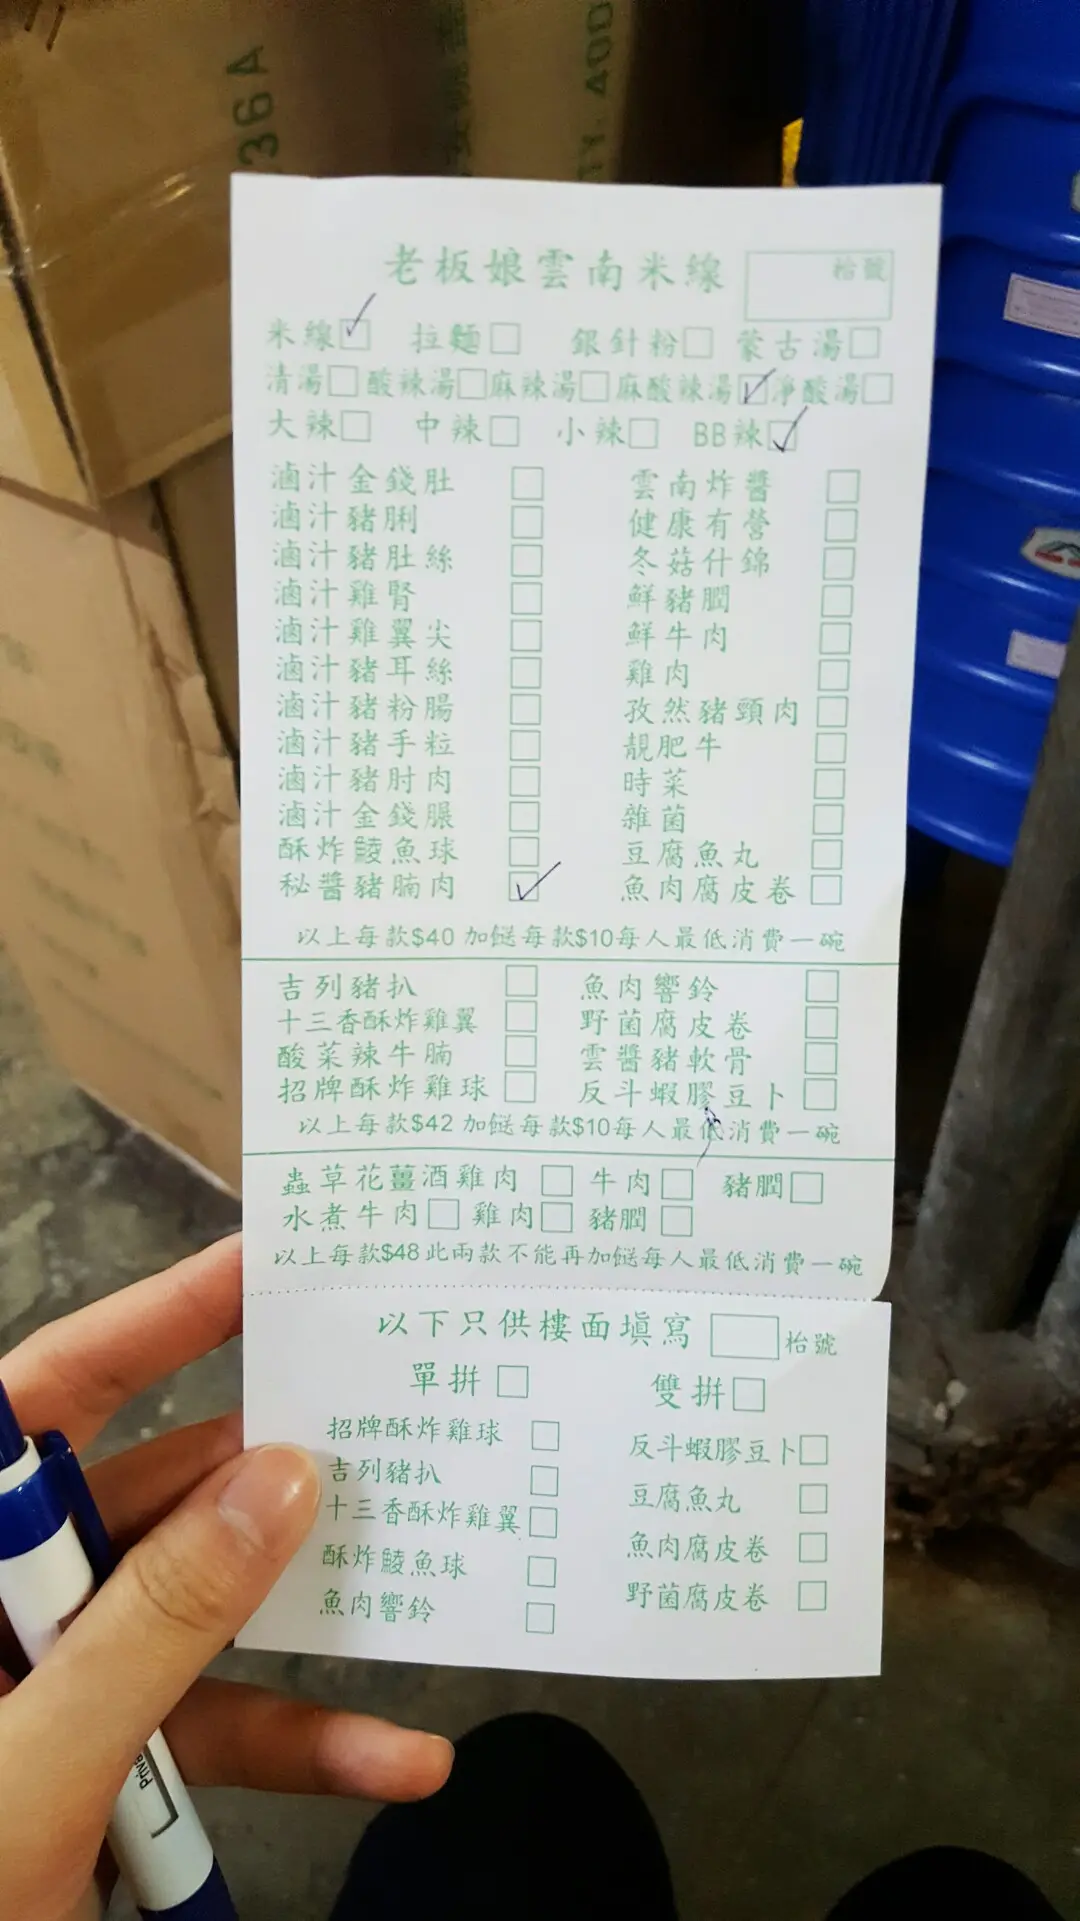 36A
TY. 400
老板娘雲南米線 枱號
米線☑ 拉麵☐ 銀針粉☐ 蒙古湯☐
清湯☐ 酸辣湯☐ 麻辣湯☐ 麻酸辣湯☑ 淨酸湯☐
大辣☐ 中辣☐ 小辣☐ BB辣☑
滷汁金錢肚☐ 雲南炸醬☐
滷汁豬脷☐ 健康有營☐
滷汁豬肚絲☐ 冬菇什錦☐
滷汁雞腎☐ 鮮豬膶☐
滷汁雞翼尖☐ 鮮牛肉☐
滷汁豬耳絲☐ 雞肉☐
滷汁豬粉腸☐ 孜然豬頸肉☐
滷汁豬手粒☐ 靚肥牛☐
滷汁豬肘肉☐ 時菜☐
滷汁金錢𦟌☐ 雜菌☐
酥炸鯪魚球☐ 豆腐魚丸☐
秘醬豬腩肉☑ 魚肉腐皮卷☐
以上每款$40 加餸每款$10每人最低消費一碗
吉列豬扒☐ 魚肉響鈴☐
十三香酥炸雞翼☐ 野菌腐皮卷☐
酸菜辣牛腩☐ 雲醬豬軟骨☐
招牌酥炸雞球☐ 反斗蝦膠豆卜☐
以上每款$42 加餸每款$10每人最低消費一碗
蟲草花薑酒雞肉☐ 牛肉☐ 豬膶☐
水煮牛肉☐ 雞肉☐ 豬膶☐
以上每款$48此兩款不能再加餸每人最低消費一碗
以下只供樓面填寫 枱號
單拼☐ 雙拼☐
招牌酥炸雞球☐ 反斗蝦膠豆卜☐
吉列豬扒☐ 豆腐魚丸☐
十三香酥炸雞翼☐ 魚肉腐皮卷☐
酥炸鯪魚球☐ 野菌腐皮卷☐
魚肉響鈴☐